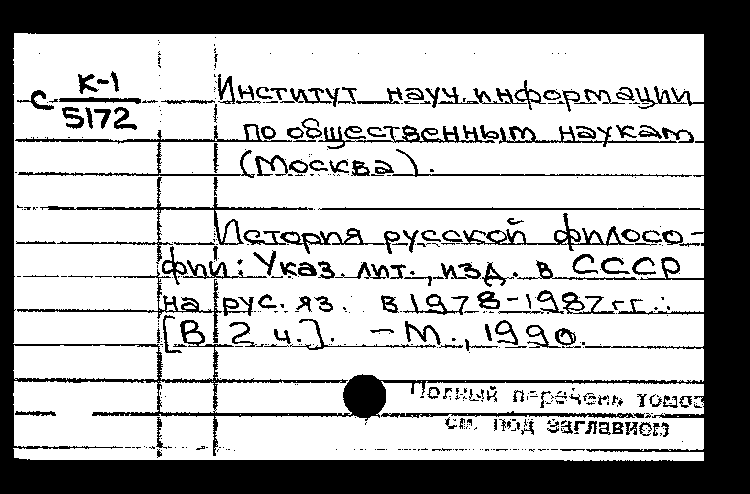 с К-1
5172
Институт науч. информации
по общественным наукам
(Москва).
История русской филосо-
фии: Указ. лит., изд. в СССР
на рус. яз. в 1978-1987 гг.:
[В 2 ч.]. - М., 1990.
Полный перечень томов
см. под заглавием